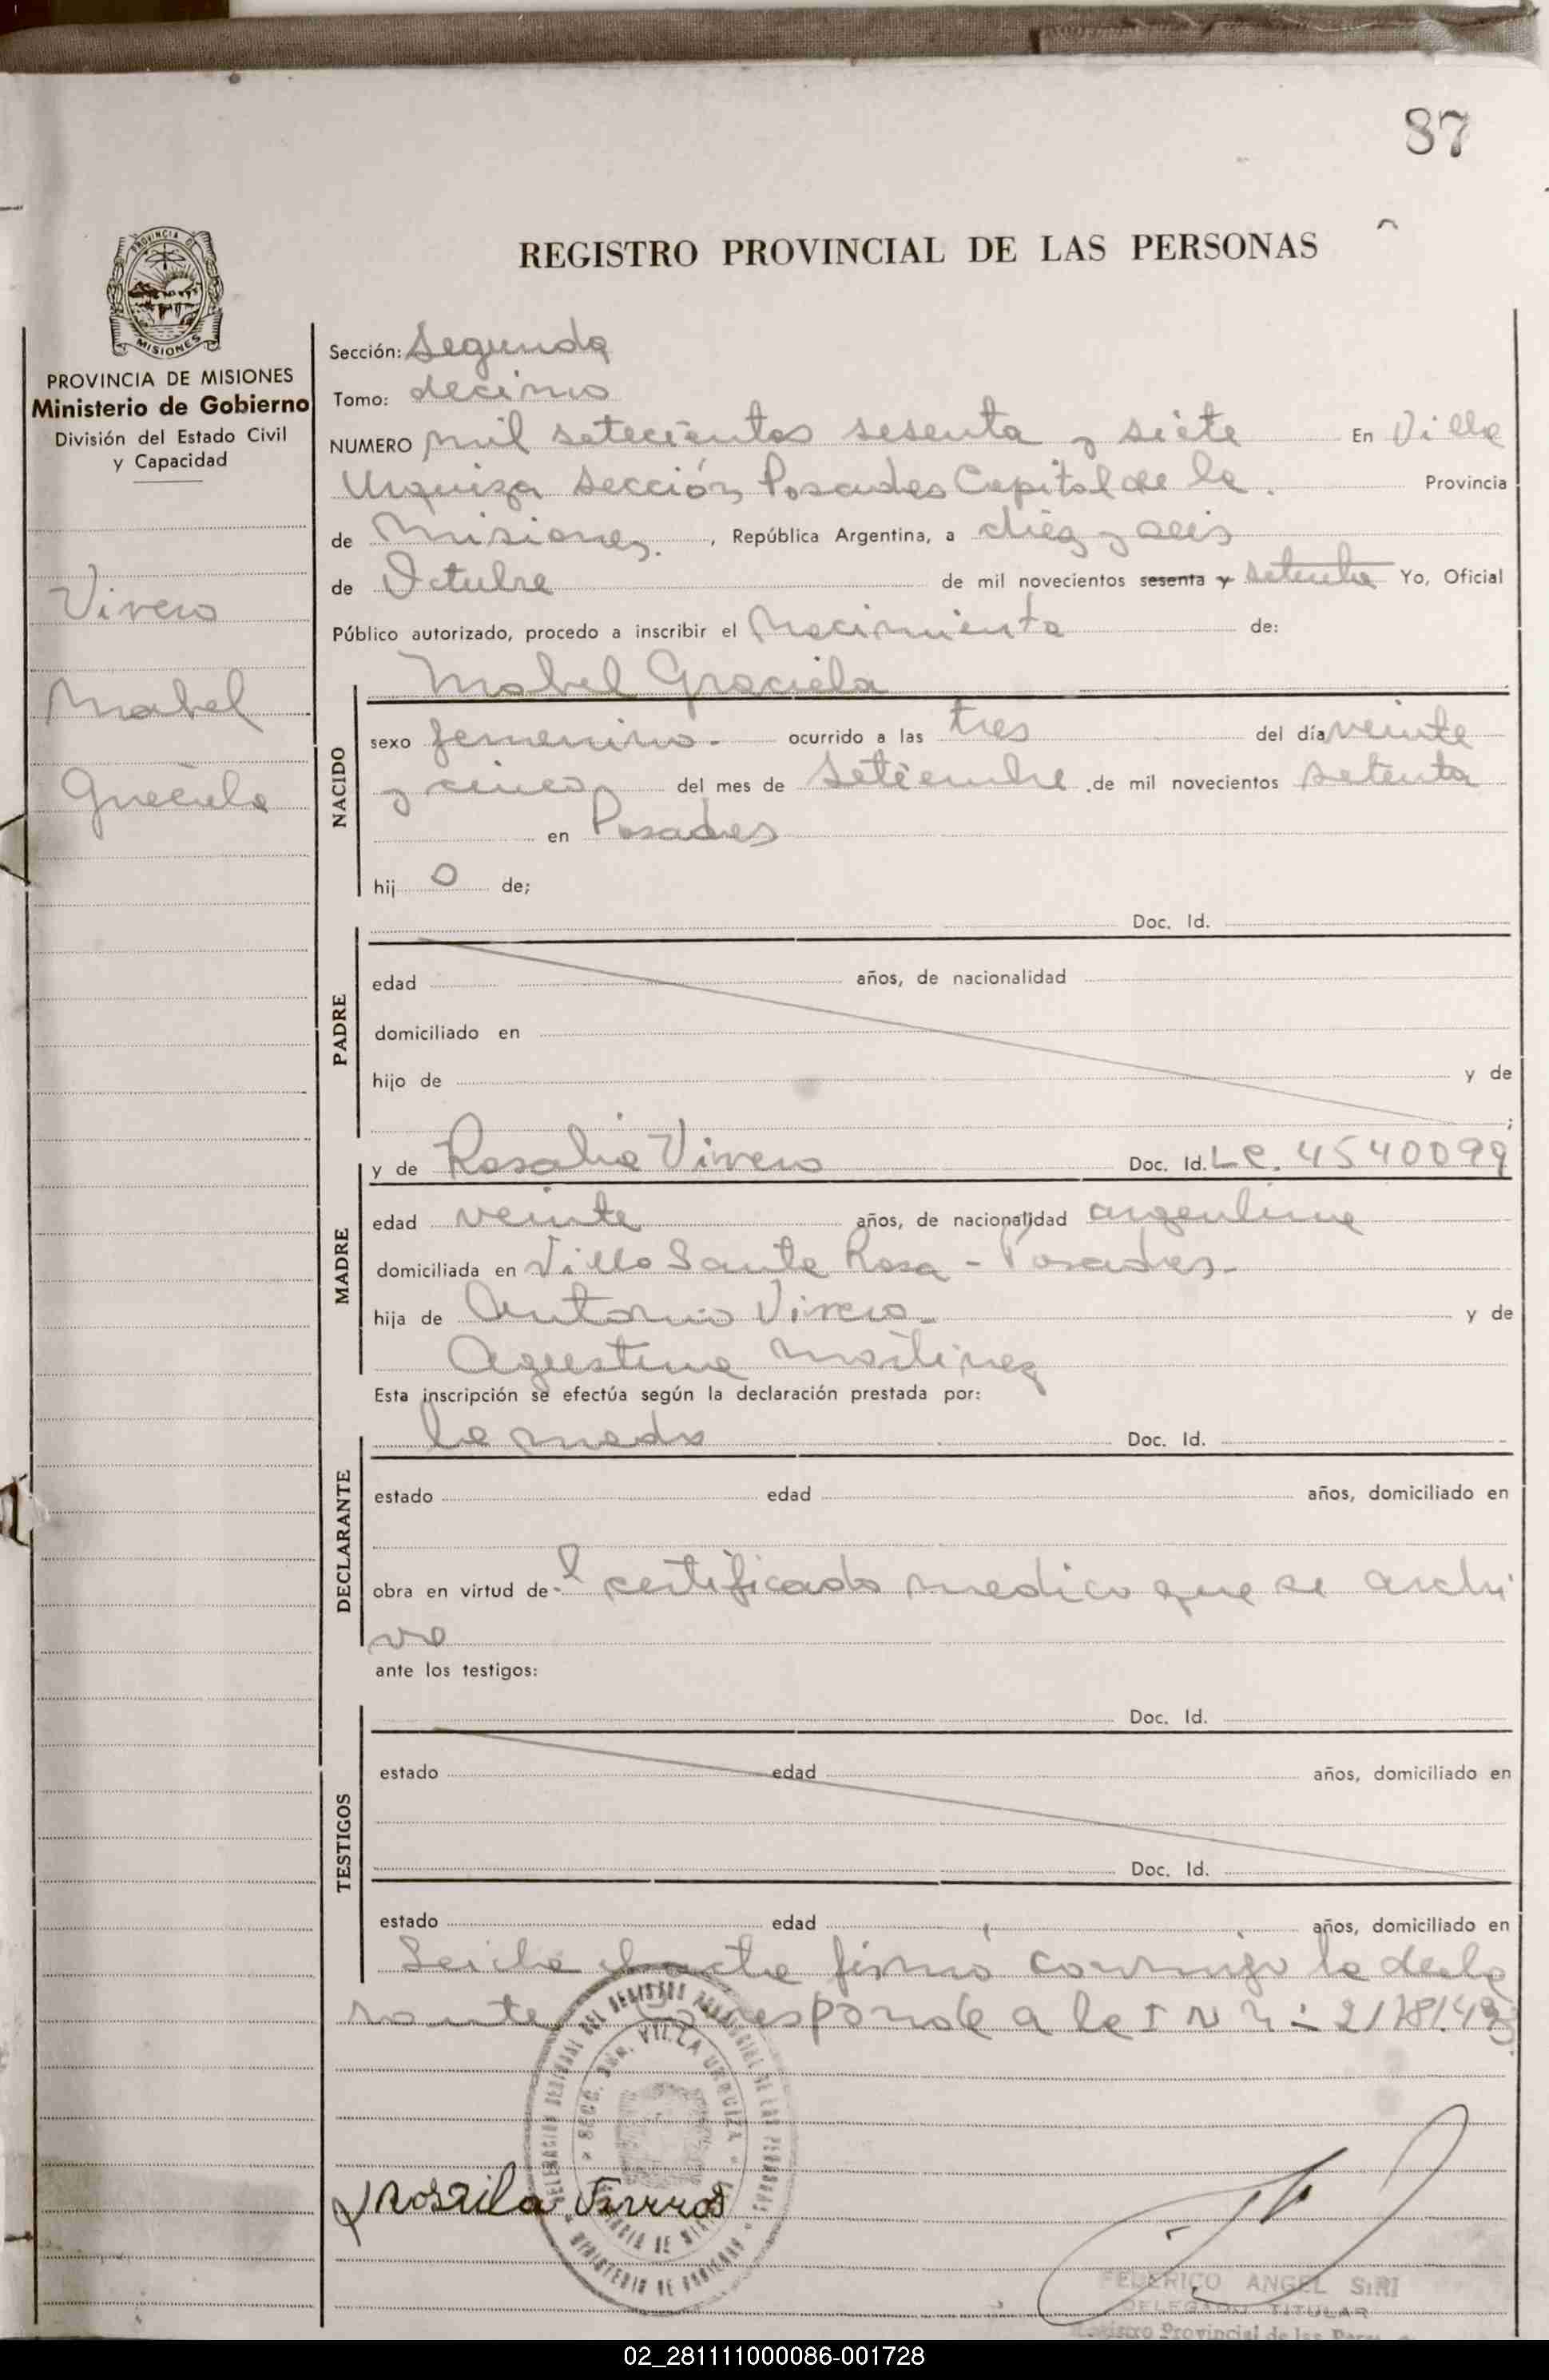 87
REGISTRO PROVINCIAL DE LAS PERSONAS
PROVINCIA DE
MISIONES
PROVINCIA DE MISIONES
Ministerio de Gobierno
División del Estado Civil
y Capacidad
Vivero
Mabel
Graciela
Sección: Segunda
Tomo: decimo
NUMERO mil setecientos sesenta y siete En Villa
Urquiza Sección Posadas Capital de la Provincia
de Misiones. , República Argentina, a diez y seis
de Octubre de mil novecientos sesenta y setenta Yo, Oficial
Público autorizado, procedo a inscribir el Nacimiento de:
Mabel Graciela
NACIDO
sexo femenino.- ocurrido a las tres del día veinte
y cinco del mes de Setiembre de mil novecientos setenta
en Posadas
hij o de;
PADRE
Doc. Id.
edad años, de nacionalidad
domiciliado en
hijo de y de
;
MADRE
y de Rosalia Vivero Doc. Id. LC. 4540099
edad veinte años, de nacionalidad argentina
domiciliada en Villa Santa Rosa - Posadas.-
hija de Antonio Vivero.- y de
Agustina Martinez
Esta inscripción se efectúa según la declaración prestada por:
DECLARANTE
la madre Doc. Id.
estado edad años, domiciliado en
obra en virtud de-l certificado medico que se archi
va
ante los testigos:
TESTIGOS
Doc. Id.
estado edad años, domiciliado en
Doc. Id.
estado edad años, domiciliado en
Leida el acta firmó conmigo la decla
rante Corresponde a la I N
DELEGACION REGIONAL DEL REGISTRO PROVINCIAL DE LAS PERSONAS
SECC. VILLA URQUIZA
MINISTERIO DE GOBIERNO
FEDERICO ANGEL SIRI
DELEGADO TITULAR
Registro Provincial de las
02_281111000086-001728